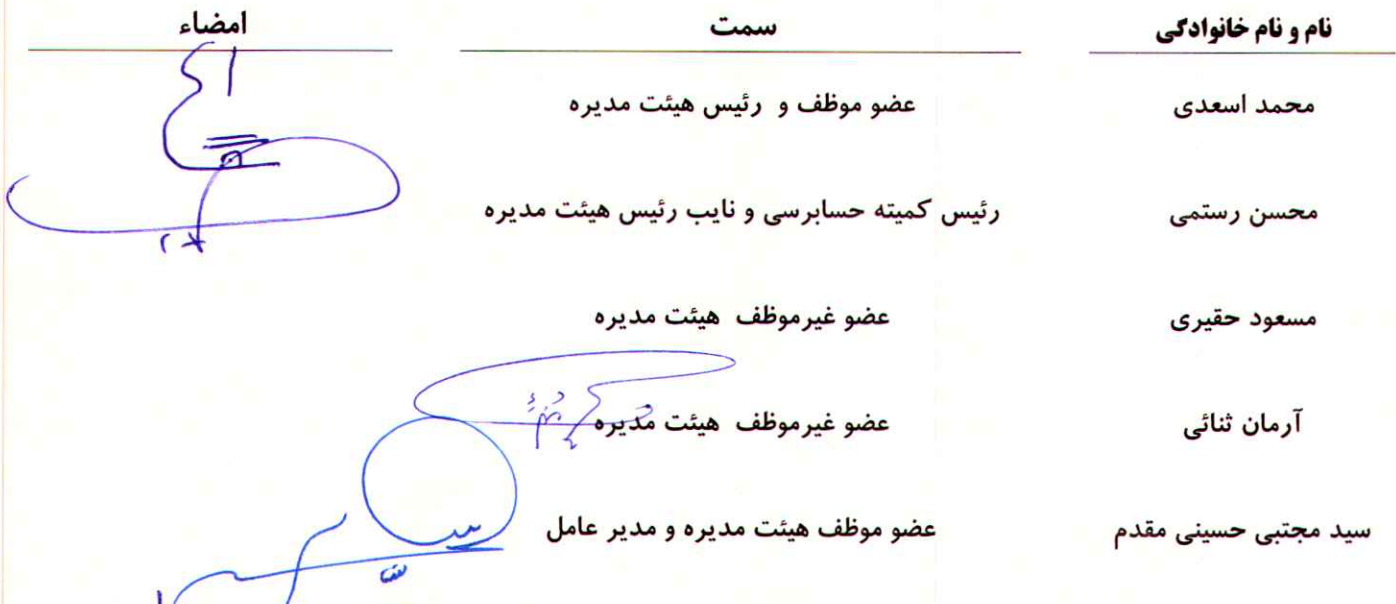 نام و نام خانوادگی سمت امضاء
محمد اسعدی عضو موظف و رئیس هیئت مدیره
محسن رستمی رئیس کمیته حسابرسی و نایب رئیس هیئت مدیره
مسعود حقیری عضو غیرموظف هیئت مدیره
آرمان ثنائی عضو غیرموظف هیئت مدیره
سید مجتبی حسینی مقدم عضو موظف هیئت مدیره و مدیر عامل